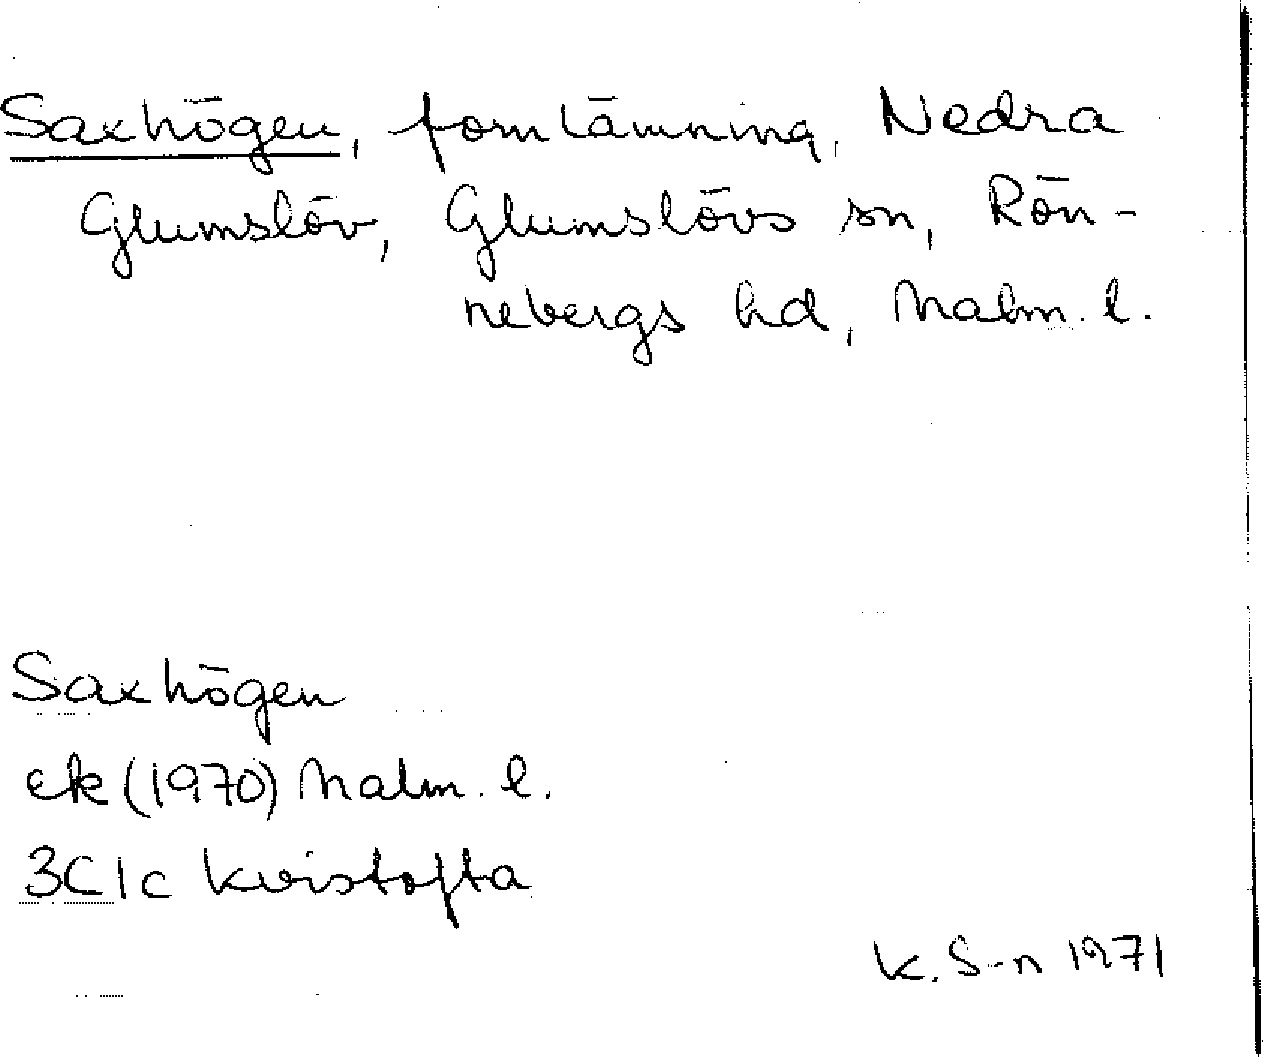 Saxhögen, fornlämning, Nedra
Glumslöv, Glumslövs sn, Rön-
nebergs hd, Malm. l.
Saxhögen
ek (1970) Malm. l.
3C1c Kvistofta
K. S-n 1971